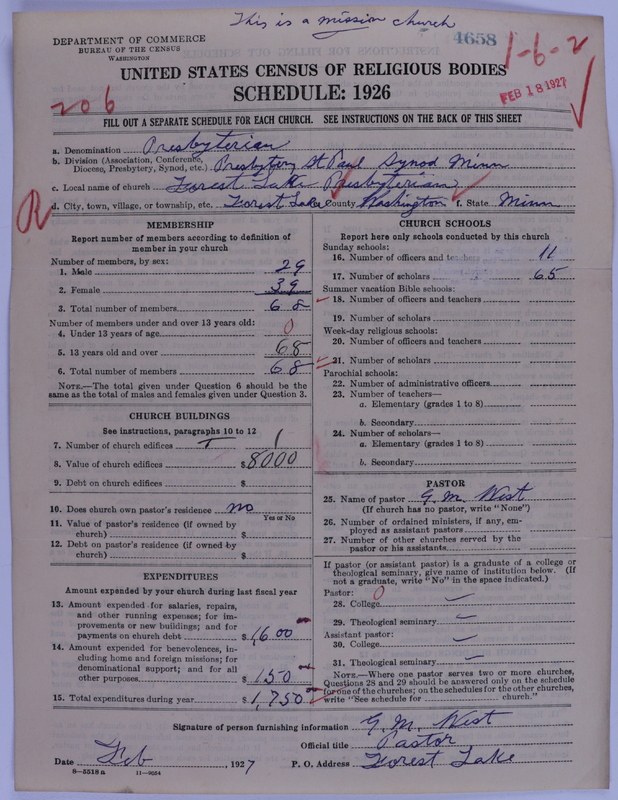 This is a mission church
DEPARTMENT OF COMMERCE
BUREAU OF THE CENSUS
WASHINGTON
4658
1-6-2
UNITED STATES CENSUS OF RELIGIOUS BODIES
SCHEDULE: 1926
FEB 18 1927
206
FILL OUT A SEPARATE SCHEDULE FOR EACH CHURCH. SEE INSTRUCTIONS ON THE BACK OF THIS SHEET
a. Denomination Presbyterian
b. Division (Association, Conference, Diocese, Presbytery, Synod, etc.) Presbytery St Paul Synod Minn
c. Local name of church Forest Lake Presbyterian
d. City, town, village, or township, etc. Forest Lake County Washington f. State Minn
R
MEMBERSHIP
Report number of members according to definition of
member in your church
Number of members, by sex:
1. Male 29
2. Female 39
3. Total number of members 68
Number of members under and over 13 years old:
4. Under 13 years of age 0
5. 13 years old and over 68
6. Total number of members 68
NOTE.—The total given under Question 6 should be the
same as the total of males and females given under Question 3.
CHURCH BUILDINGS
See instructions, paragraphs 10 to 12
7. Number of church edifices 1
8. Value of church edifices $ 8000
9. Debt on church edifices $
10. Does church own pastor's residence no
Yes or No
11. Value of pastor's residence (if owned by
church) $
12. Debt on pastor's residence (if owned by
church) $
EXPENDITURES
Amount expended by your church during last fiscal year
13. Amount expended for salaries, repairs,
and other running expenses; for im-
provements or new buildings; and for
payments on church debt $ 1,600
14. Amount expended for benevolences, in-
cluding home and foreign missions; for
denominational support; and for all
other purposes $ 150
15. Total expenditures during year $ 1,750
CHURCH SCHOOLS
Report here only schools conducted by this church
Sunday schools:
16. Number of officers and teachers 11
17. Number of scholars 65
Summer vacation Bible schools:
18. Number of officers and teachers
19. Number of scholars
Week-day religious schools:
20. Number of officers and teachers
21. Number of scholars
Parochial schools:
22. Number of administrative officers
23. Number of teachers—
a. Elementary (grades 1 to 8)
b. Secondary
24. Number of scholars—
a. Elementary (grades 1 to 8)
b. Secondary
PASTOR
25. Name of pastor G. M. West
(If church has no pastor, write "None")
26. Number of ordained ministers, if any, em-
ployed as assistant pastors
27. Number of other churches served by the
pastor or his assistants
If pastor (or assistant pastor) is a graduate of a college or
theological seminary, give name of institution below. (If
not a graduate, write "No" in the space indicated.)
Pastor: 0
28. College —
29. Theological seminary —
Assistant pastor:
30. College —
31. Theological seminary —
NOTE.—Where one pastor serves two or more churches,
Questions 28 and 29 should be answered only on the schedule
for one of the churches; on the schedules for the other churches,
write "See schedule for church."
Signature of person furnishing information G. M. West
Official title Pastor
Date Feb, 1927 P. O. Address Forest Lake
8—5518 a 11—9054